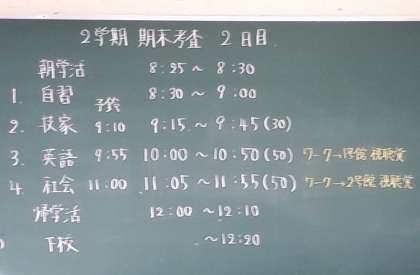 2学期 期末考査 2日目
朝学活 8:25 ～ 8:30
1. 自習 8:30 ～ 9:00
予鈴
2. 技家 9:10 9:15 ～ 9:45 (30)
3. 英語 9:55 10:00 ～ 10:50 (50) 7-7→1号館 視聴覚
4. 社会 11:00 11:05 ～ 11:55 (50) 7-7→2号館 視聴覚
帰学活 12:00 ～ 12:10
下校 ～ 12:20